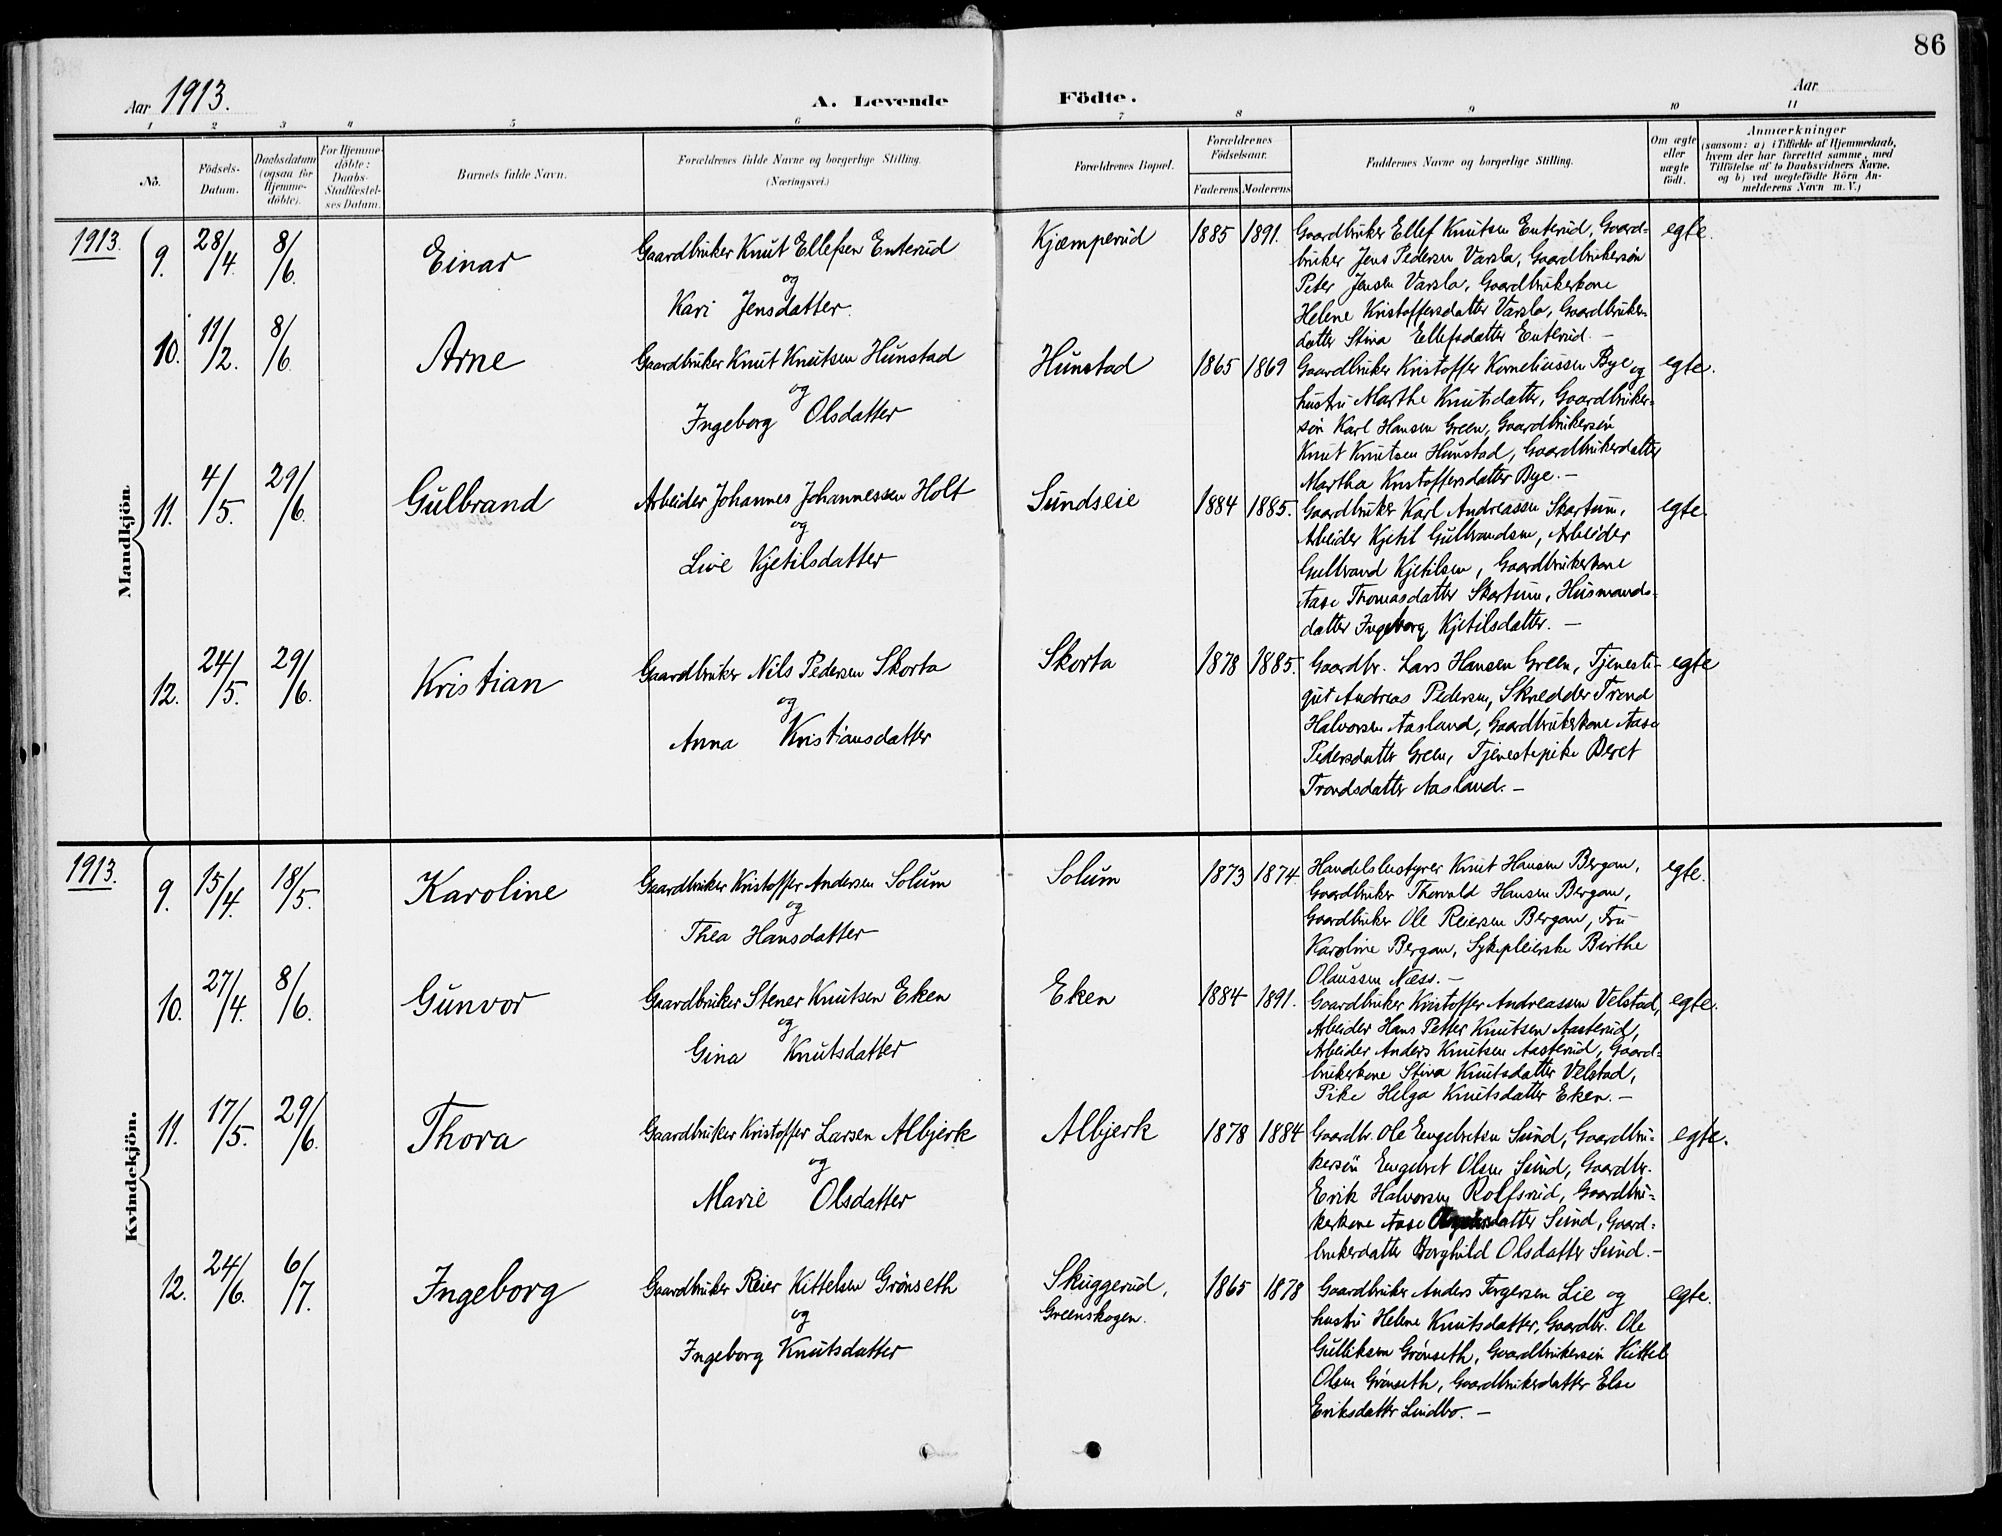 86
Aar 1913.
A. Levende Födte.
Aar
1 2 3 4 5 6 7 8 9 10 11
No.
Födsels-Datum.
Daabsdatum (ogsaa for Hjemme-döbte).
For Hjemme-döbte: Daabs-Stadfæstel-ses Datum.
Barnets fulde Navn.
Forældrenes fulde Navne og borgerlige Stilling. (Næringsvei.)
Forældrenes Bopæl.
Forældrenes Födselsaar.
Faderens Moderens
Faddernes Navne og borgerlige Stilling.
Om ægte eller uægte födt.
Anmærkninger
(saasom: a) i Tilfælde af Hjemmedaab,
hvem der har forrettet samme, med
Tilföielse af to Daabsvidners Navne,
og b) ved uægtefödte Börn An-
melderens Navn m. V.)
Mandkjön
1913.
9. 28/4. 8/6. Einar
Gaardbruker Knut Ellefsen Enterud
og
Kari Jensdatter.
Kjæmperud 1885 1891.
Gaardbruker Ellef Knutsen Enterud, Gaard-
bruker Jens Pedersen Varsla, Gaardbrukersøn
Peter Jensen Varsla, Gaardbrukerkone
Helene Kristoffersdatter Varsla, Gaardbruker-
datter Stina Ellefsdatter Enterud. –
egte.
10. 11/2. 8/6. Arne
Gaardbruker Knut Knutsen Hunstad
og
Ingeborg Olsdatter
Hunstad 1865 1869
Gaardbruker Kristoffer Korneliussen Bye og
hustru Marthe Knutsdatter, Gaardbruker-
søn Karl Hansen Green, Gaardbrukersøn
Knut Knutsen Hunstad, Gaardbrukerdatter
Martha Kristoffersdatter Bye. –
egte.
11. 4/5. 29/6. Gulbrand
Arbeider Johannes Johannessen Holt
og
Live Kjetilsdatter
Sundseie 1884 1885.
Gaardbruker Karl Andreassen Skartum,
Arbeider Kjetil Gulbrandsen, Arbeider
Gulbrand Kjetilsen, Gaardbrukerkone
Aase Thomasdatter Skartum, Husmands-
datter Ingeborg Kjetilsdatter. –
egte.
12. 24/5. 29/6. Kristian
Gaardbruker Nils Pedersen Skorta
og
Anna Kristiansdatter
Skorta 1878 1885.
Gaardbr. Lars Hansen Green, Tjeneste-
gut Andreas Pedersen, Skredder Trond
Halvorsen Aasland, Gaardbrukerkone Aase
Pedersdatter Green, Tjenestepike Beret
Trondsdatter Aasland. –
egte
Kvindekjön.
1913.
9. 15/4. 18/5. Karoline
Gaardbruker Kristoffer Andersen Solum
og
Thea Hansdatter
Solum 1873 1874.
Handelsbestyrer Knut Hansen Bergan,
Gaardbruker Thorvald Hansen Bergan,
Gaardbruker Ole Reiersen Bergan, Fru
Karoline Bergan, Sykepleierske Birthe
Olaussen Næss. –
egte.
10. 27/4. 8/6. Gunvor
Gaardbruker Stener Knutsen Eken
og
Gina Knutsdatter
Eken 1884 1891.
Gaardbruker Kristoffer Andreassen Velstad,
Arbeider Hans Petter Knutsen Aasterud,
Arbeider Anders Knutsen Aasterud, Gaard-
brukerkone Stina Knutsdatter Velstad,
Pike Helga Knutsdatter Eken. –
egte.
11. 17/5. 29/6. Thora
Gaardbruker Kristoffer Larsen Albjerk
og
Marie Olsdatter
Albjerk 1878 1884
Gaardbr. Ole Engebretsen Sund, Gaardbru-
kersøn Engebret Olsen Sund, Gaardbr.
Erik Halvorsen Rolfsrud, Gaardbru-
kerkone Aase Sund, Gaard-
brukerdatter Borghild Olsdatter Sund. –
egte.
12. 24/6. 6/7. Ingeborg
Gaardbruker Reier Kittelsen Grönseth
og
Ingeborg Knutsdatter
Skuggerud,
Greenskogen.
1865 1878
Gaardbruker Anders Torgersen Lie og
hustru Helene Knutsdatter, Gaardbr. Ole
Gulliksen Grönseth, Gaardbrukersøn Kittel
Olsen Grönseth, Gaardbrukerdatter Else
Eriksdatter Lindbo. –
egte.